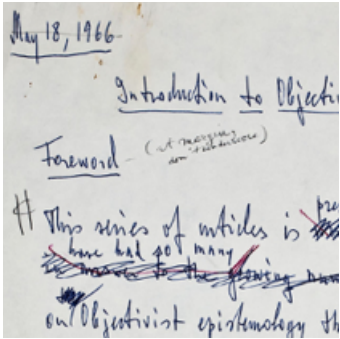 May 18, 1966
Introduction to Objecti
Foreword
(at margin,
don't
#
This series of articles is
pre
have had so many
to the growing
on Objectivist epistemology th